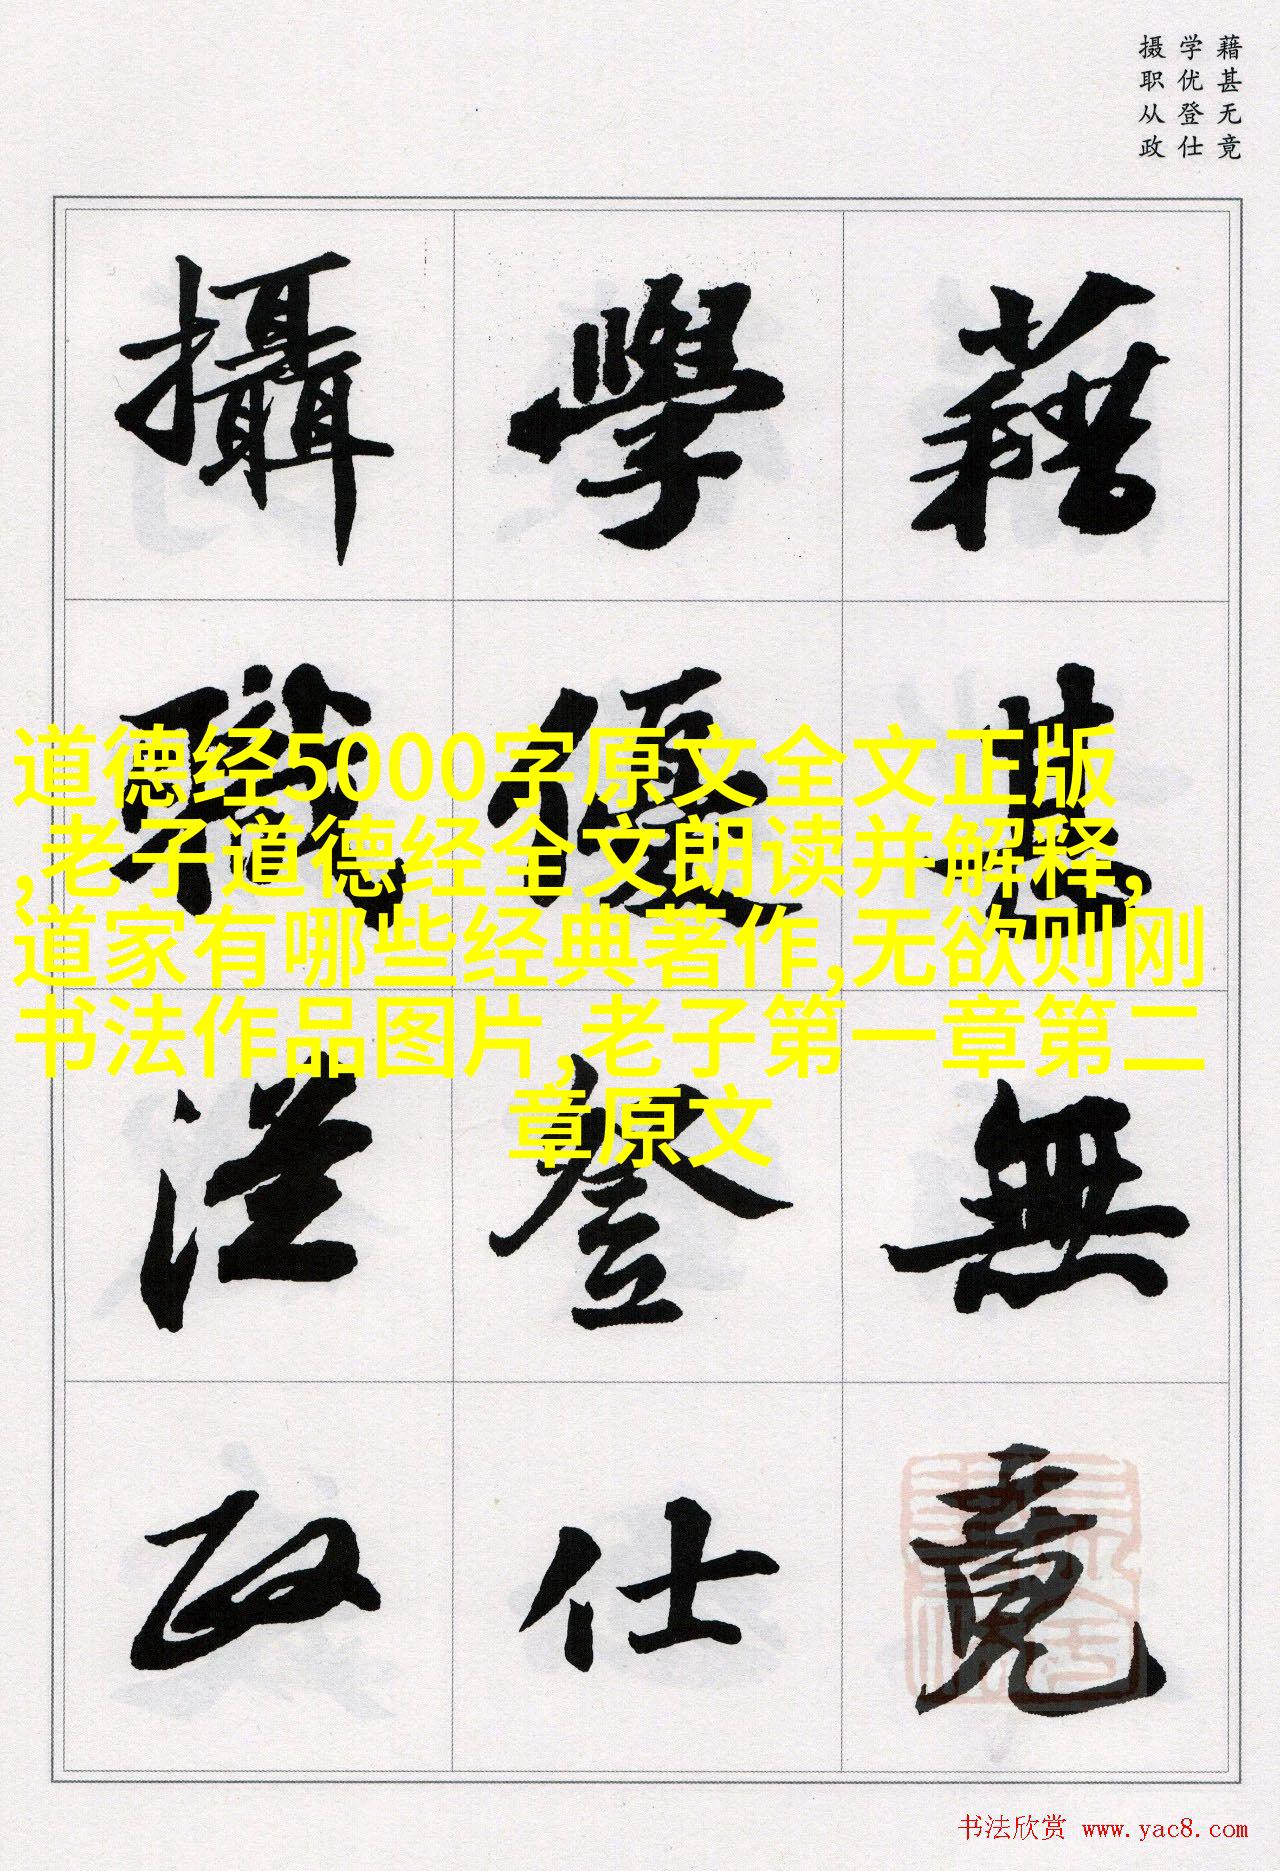 藉甚无竟
学优登仕
摄职从政
藉甚無竟
學優登仕
攝職從政
道德经5000字原文全文正版
,老子道德经全文朗读并解释,
道家有哪些经典著作,无欲则刚
书法作品图片,老子第一章第二
章原文
书法欣赏 www.yac8.com